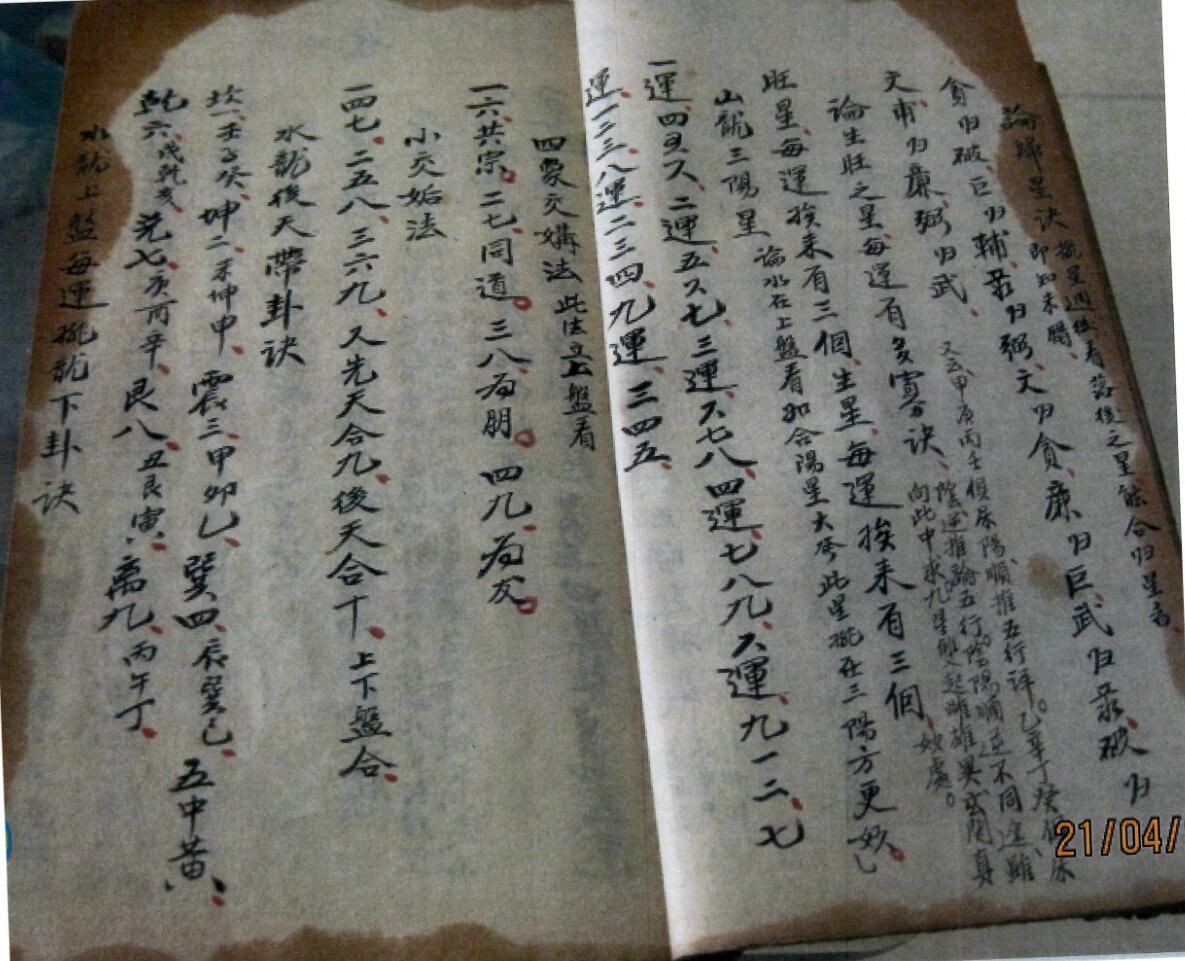 論歸星訣 挨星週後看落後之星能合归星者
即知未腊
貪归破、巨归輔、彔归弼、文归貪、廉归巨、武归彔、破归
文、甫归廉、弼归武、
又云甲庚丙壬俱属陽、順推五行详。乙辛丁癸俱属
陰、逆推論五行。陰陽順逆不同途、雖
向此中求。九星雙起雌雄異、玄関真
妙處。
論生旺之星、每運有多寡訣、
旺星、每運挨来有三個、生星、每運挨来有三個、
山龍三陽星 論水在上盤看如合陽星大發此星挨在三陽方更妙
一運、四五六、二運、五六七、三運、六七八、四運、七八九、六運、九一二、七
運、一二三、八運、二三四、九運、三四五、
四象交媾法 此法立上盤看
一六、共宗。二七、同道。三八、為朋。四九、為友。
小交姤法
一四七、二五八、三六九、又先天合九、後天合十、上下盤合、
水龍後天帶卦訣
坎一、壬子癸、坤二、未坤申、震三、甲卯乙、巽四、辰巽巳、五中黃、
乾六、戌乾亥、兑七、庚酉辛、艮八、丑艮寅、離九、丙午丁、
水龍上盤每運挨龍下卦訣
21/04/